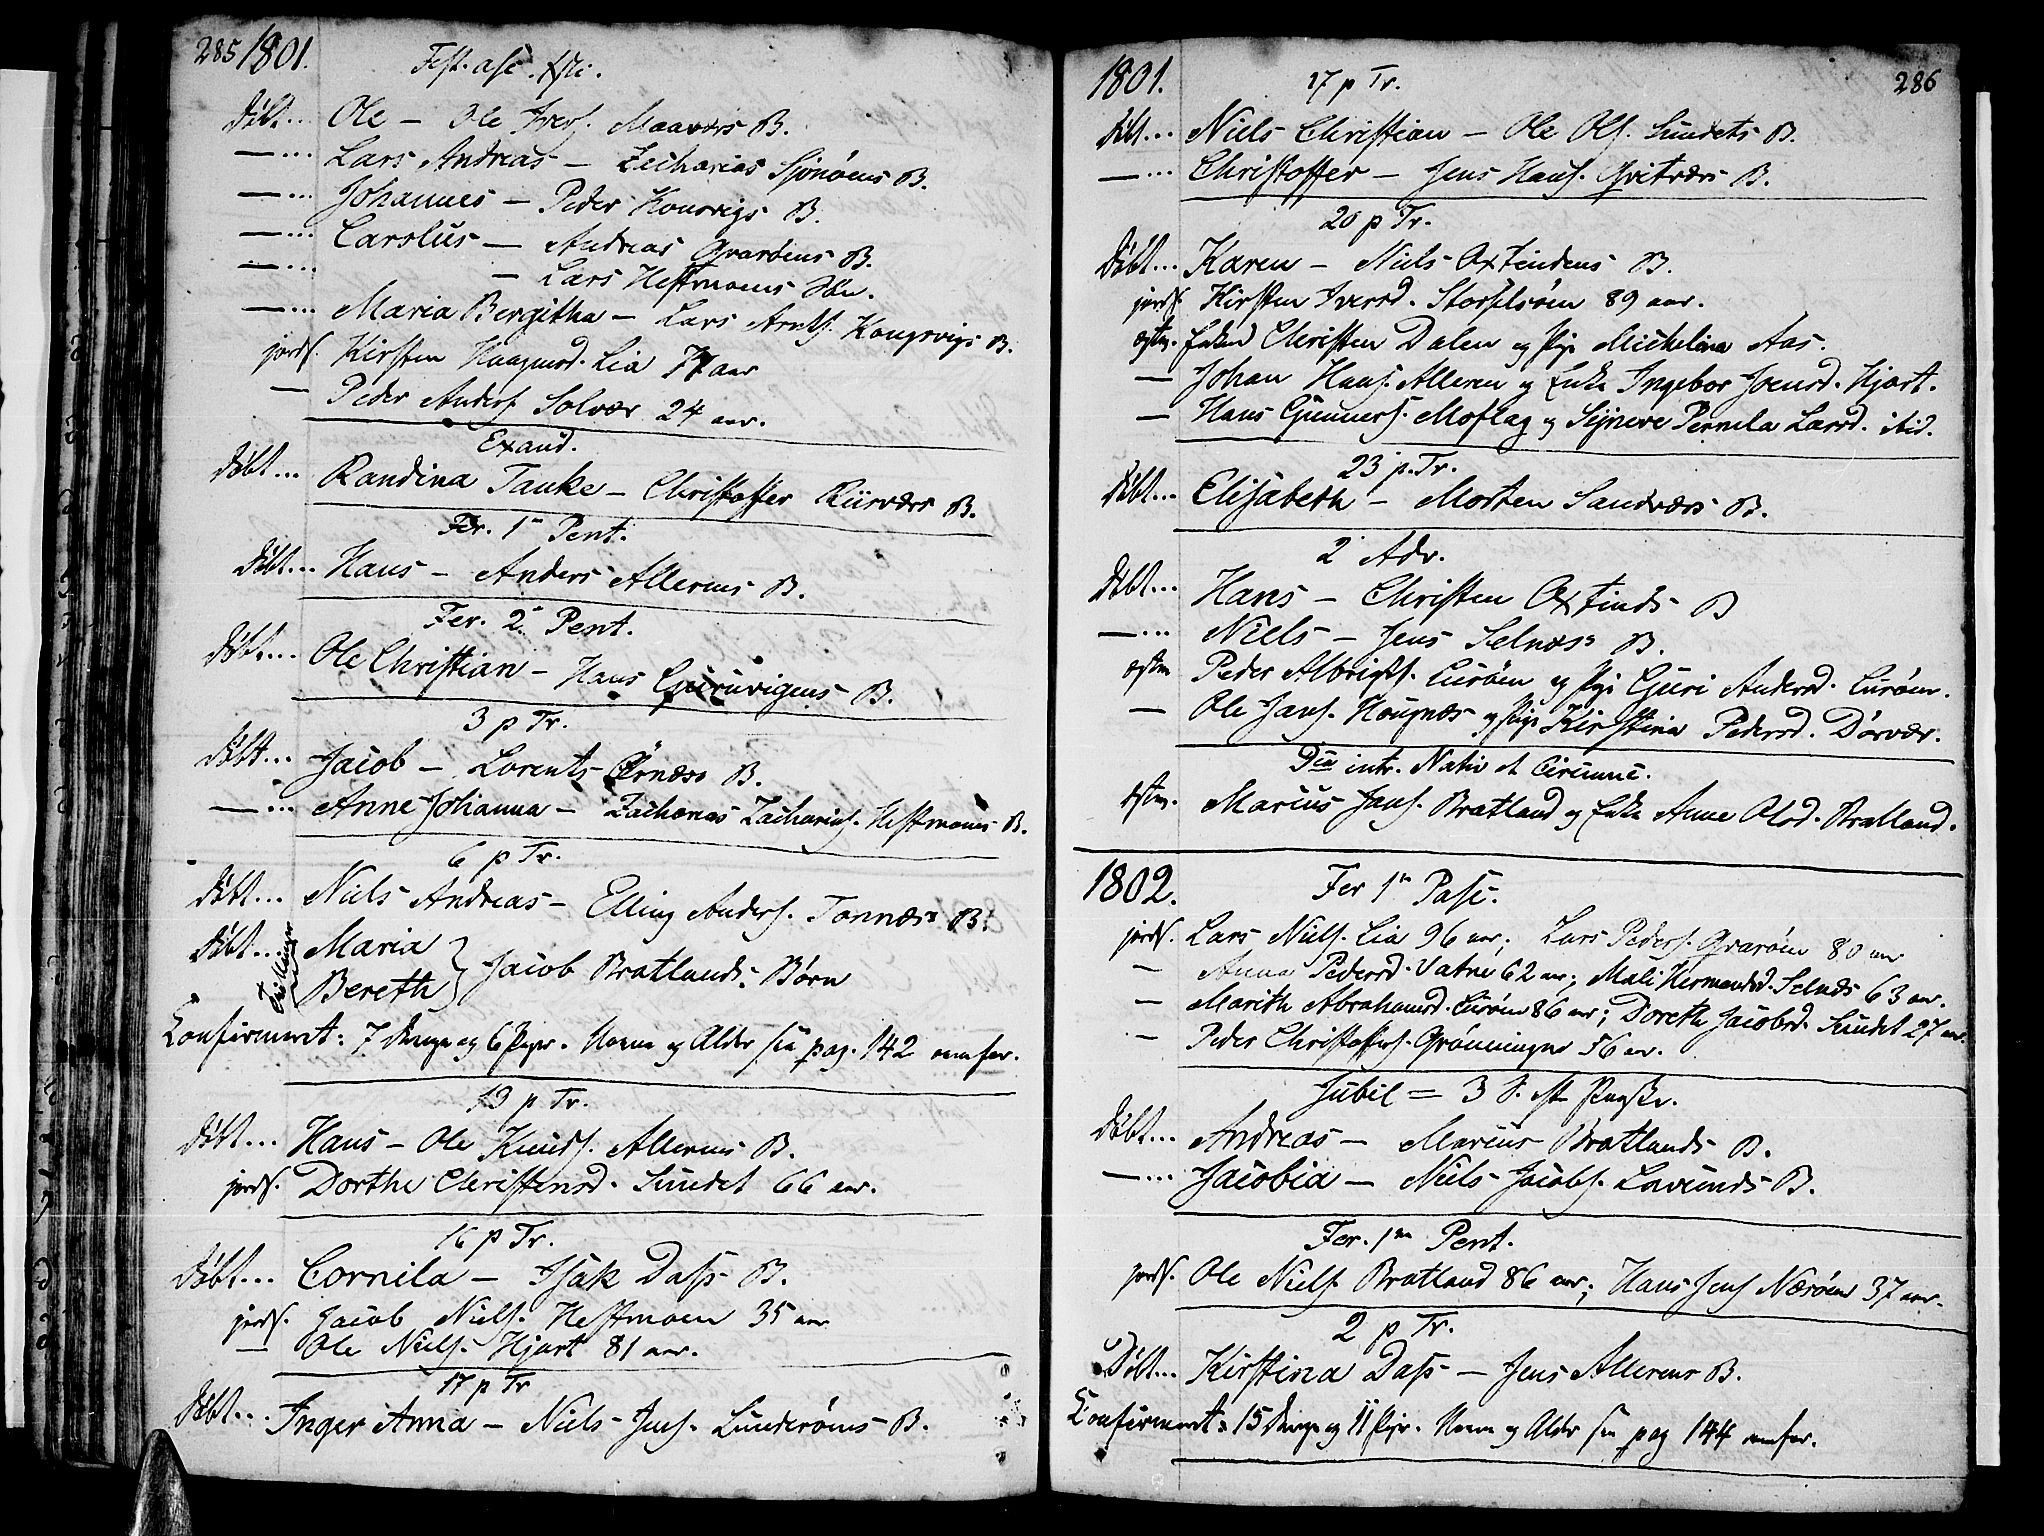 285 1801. Fest. asc. Xsti.
Døbt... Ole – Ole Ivers. Maaværs B.
—... Lars Andreas – Zecharias Sjonøens B.
—... Johannes – Peder Konsvigs B.
—... Carolus – Andreas Qvarøens B.
—... – Lars Hestmoens
—... Maria Bergitha – Lars Arnts. Kongsvigs B.
jordf. Kirsten Haagensd. Lia 77 aar
— Peder Anders. Solvær 24 aar.
Exaud.
Døbt... Randina Tanke – Christoffer Riisværs B.
Fer. 1ª Pent.
Døbt... Hans – Anders Allerens B.
Fer. 2ª Pent.
Døbt... Ole Christian – Hans Guruvigens B.
3 p Tr.
Døbt... Jacob – Lorents Ørnæs B.
—... Anne Johanna – Zacharias Zacharias. Hestmoens B.
6 p Tr.
Døbt... Niels Andreas – Elling Anders. Tonnæs B.
Døbt... Maria
Tvillinger Bereth } Jacob Bratlands Børn
Confirmeret: 7 Drenge og 6 Piger. Navne og Alder see pag. 142 nemfør.
13 p Tr.
Døbt... Hans – Ole Knuds. Allerens B.
jordf. Dorthe Christensd. Sundet 66 aar.
16 p Tr.
Døbt... Cornila – Isak Dass B.
jordf. Jacob Niels. Hestmoen 35 aar
— Ole Niels. Hjart 81 aar.
17 p Tr
Døbt... Inger Anna – Niels Jens. Lunderøens B.
1801. 17 p Tr. 286
Døbt... Niels Christian – Ole Ols. Sundets B.
—... Christoffer – Jens Hans. Qvitværs B.
20 p Tr.
Døbt... Karen – Niels Oxtindens B.
jordf. Kirsten Iversd. Storselsøen 89 aar.
Christen Dalen og Pige Michelina Aas.
— Johan Hans. Alleren og Enke Ingebor Joensd. Hjart.
— Hans Gunners. Moflag og Synneve Pernila Larsd. ibid.
23 p. Tr.
Døbt... Elisabeth – Morten Sandværs B.
2 Adv.
Døbt... Hans – Christen Oxtinds B
—... Niels – Jens Selnæs B.
Peder Albrigts. Lurøen og Pige Guri Andersd. Lurøen.
— Ole Jans. Haugnæs og Pige Kirstina Pedersd. Dørvær.
Dca intr. Nativ et Circumc.
Marcus Jans. Bratland og Enke Anne Olsd. Bratland.
1802. Fer 1ª Pasc.
jordf. Lars Niels. Lia 96 aar; Lars Peders. Qvarøen 80 aar
— Anna Pedersd. Vatne 62 aar; Mali Hermandsd. Selnæs 63 aar.
— Marith Abrahamsd. Lurøen 86 aar; Dorethe Jacobsd. Sundet 27 aar.
— Peder Christoffers. Grønningen 56 aar.
Jubil = 3 S. eft Paaske.
Døbt... Andreas – Marcus Bratlands B.
—... Jacobia – Niels Jacobs. Lovunds B.
Fer. 1ma Pent.
jordf. Ole Niels. Bratland 86 aar; Hans Jens. Nærøen 37 aar.
2 p Tr.
Døbt... Kirstina Dass – Jens Allerens B.
Confirmeret: 15 Drenge og 11 Piger. Navne og Alder see pag 144 nemfør.